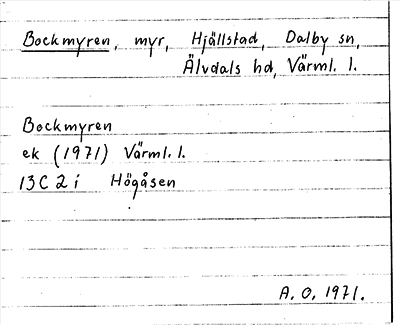 Bockmyren, myr, Hjällstad, Dalby sn,
Älvdals hd, Värml. l.
Bockmyren
ek (1971) Värml. l.
13C 2 i Högåsen
A. O. 1971.